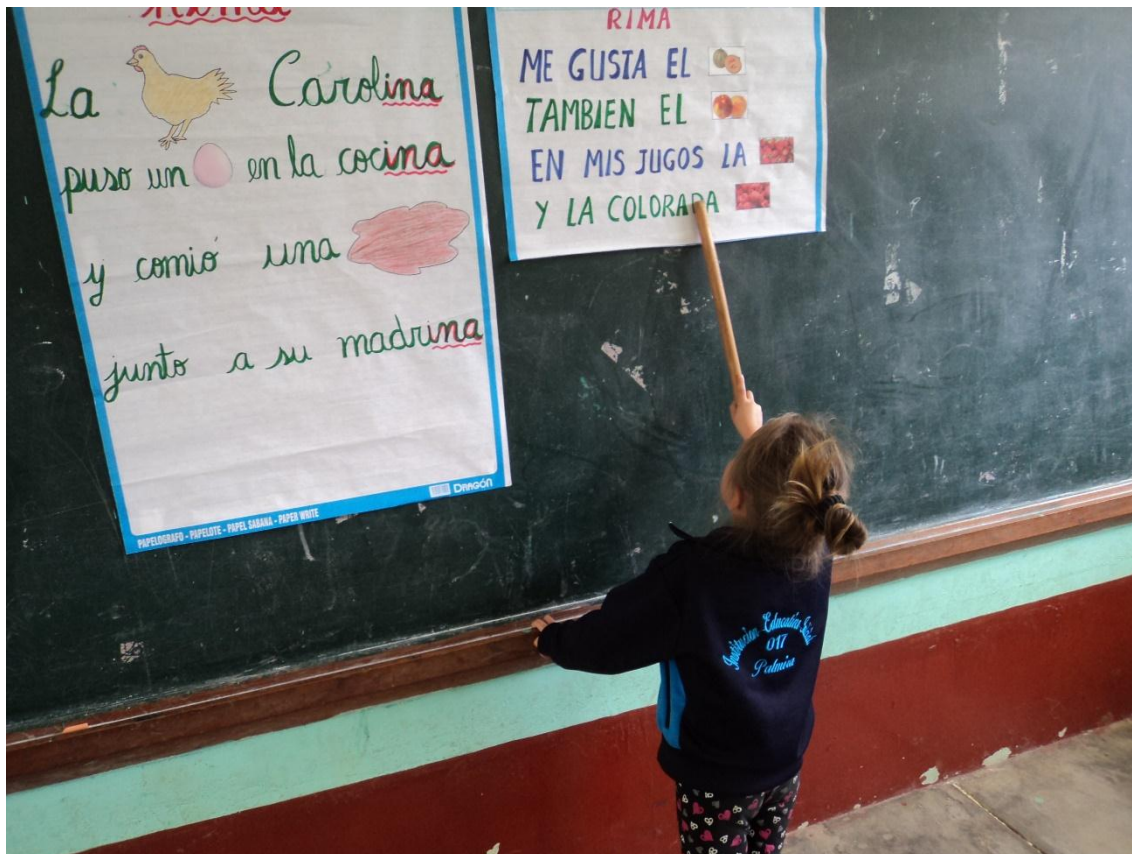 Rima
La Carolina
puso un en la cocina
y comió una
junto a su madrina
PAPELOGRAFO - PAPELOTE - PAPEL SABANA - PAPER WRITE
DRAGÓN
RIMA
ME GUSTA EL
TAMBIEN EL
EN MIS JUGOS LA
Y LA COLORADA
Institucion Educativa Inicial
017
Palmira